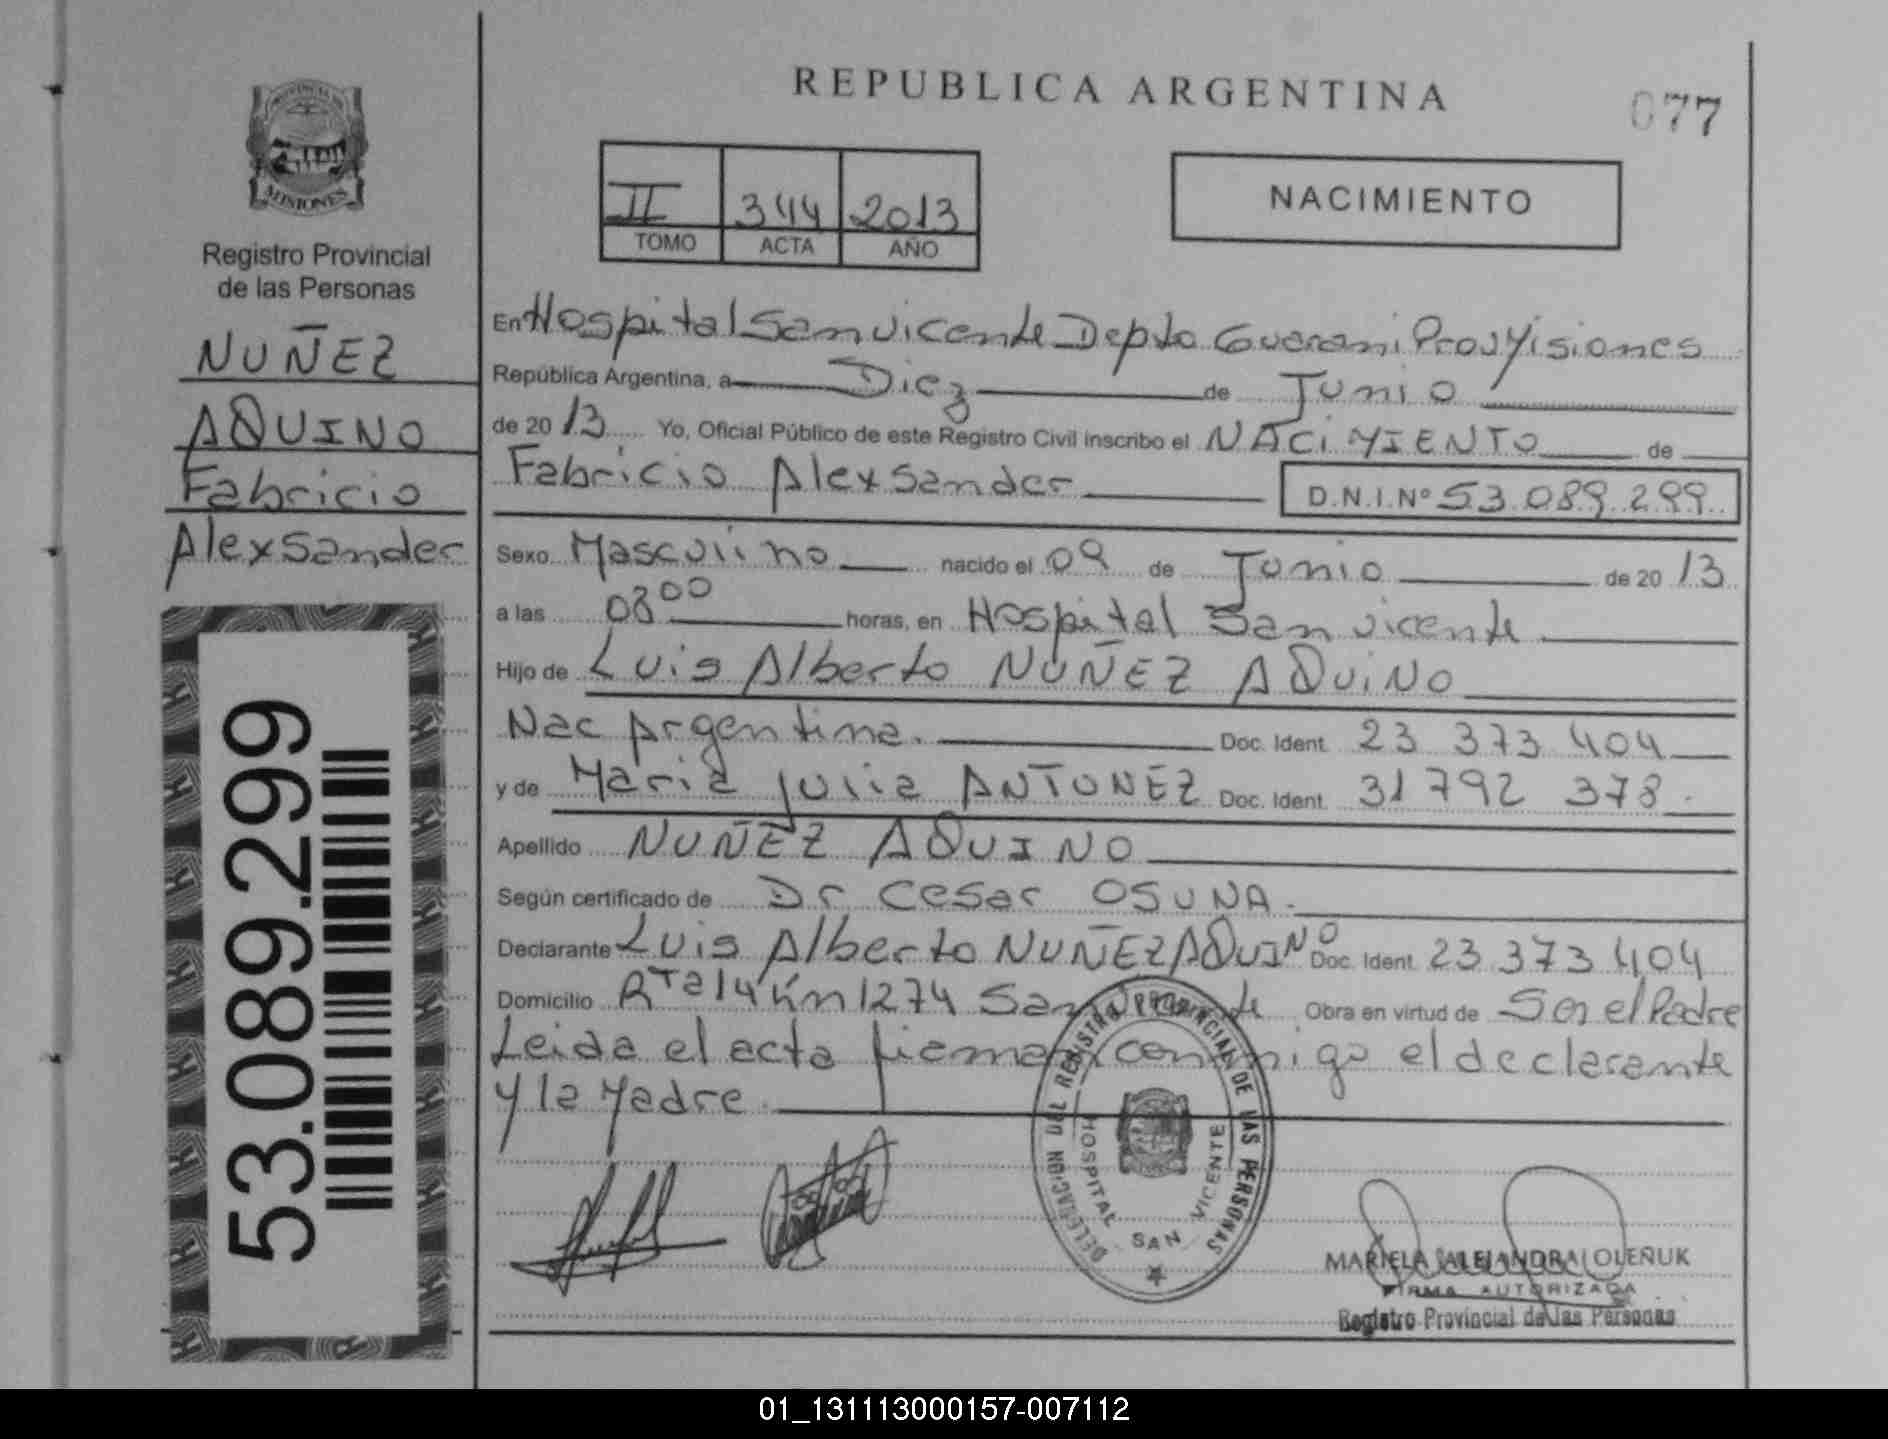 REPUBLICA ARGENTINA
077
PROVINCIA DE
MISIONES
Registro Provincial
de las Personas
NUÑEZ
AQUINO
Fabricio
Alexsander
53.089.299
II 344 2013
TOMO ACTA AÑO
NACIMIENTO
En Hospital San Vicente Depto Guarani Prov Misiones
República Argentina, a Diez de Junio
de 20 13 Yo, Oficial Público de este Registro Civil inscribo el NACIMIENTO de
Fabricio Alexsander D.N.I.Nº 53.089.299
Sexo Masculino nacido el 09 de Junio de 20 13
a las 08 00 horas, en Hospital San Vicente
Hijo de Luis Alberto NUÑEZ AQUINO
Nac Argentina. Doc. Ident. 23 373 404
y de Maria Julia ANTUNEZ Doc. Ident. 31 792 378.
Apellido NUÑEZ AQUINO
Según certificado de Dr Cesar OSUNA.
Declarante Luis Alberto NUÑEZ AQUINO Doc. Ident. 23 373 404
Domicilio Rta 14 Km 1274 San Vicente Obra en virtud de Ser el Padre
Leida el acta firman conmigo el declarante
y la Madre.
DELEGACION DEL REGISTRO PROVINCIAL DE LAS PERSONAS
HOSPITAL SAN VICENTE
MARIELA ALEJANDRA OLEÑUK
FIRMA AUTORIZADA
Registro Provincial de las Personas
01_131113000157-007112